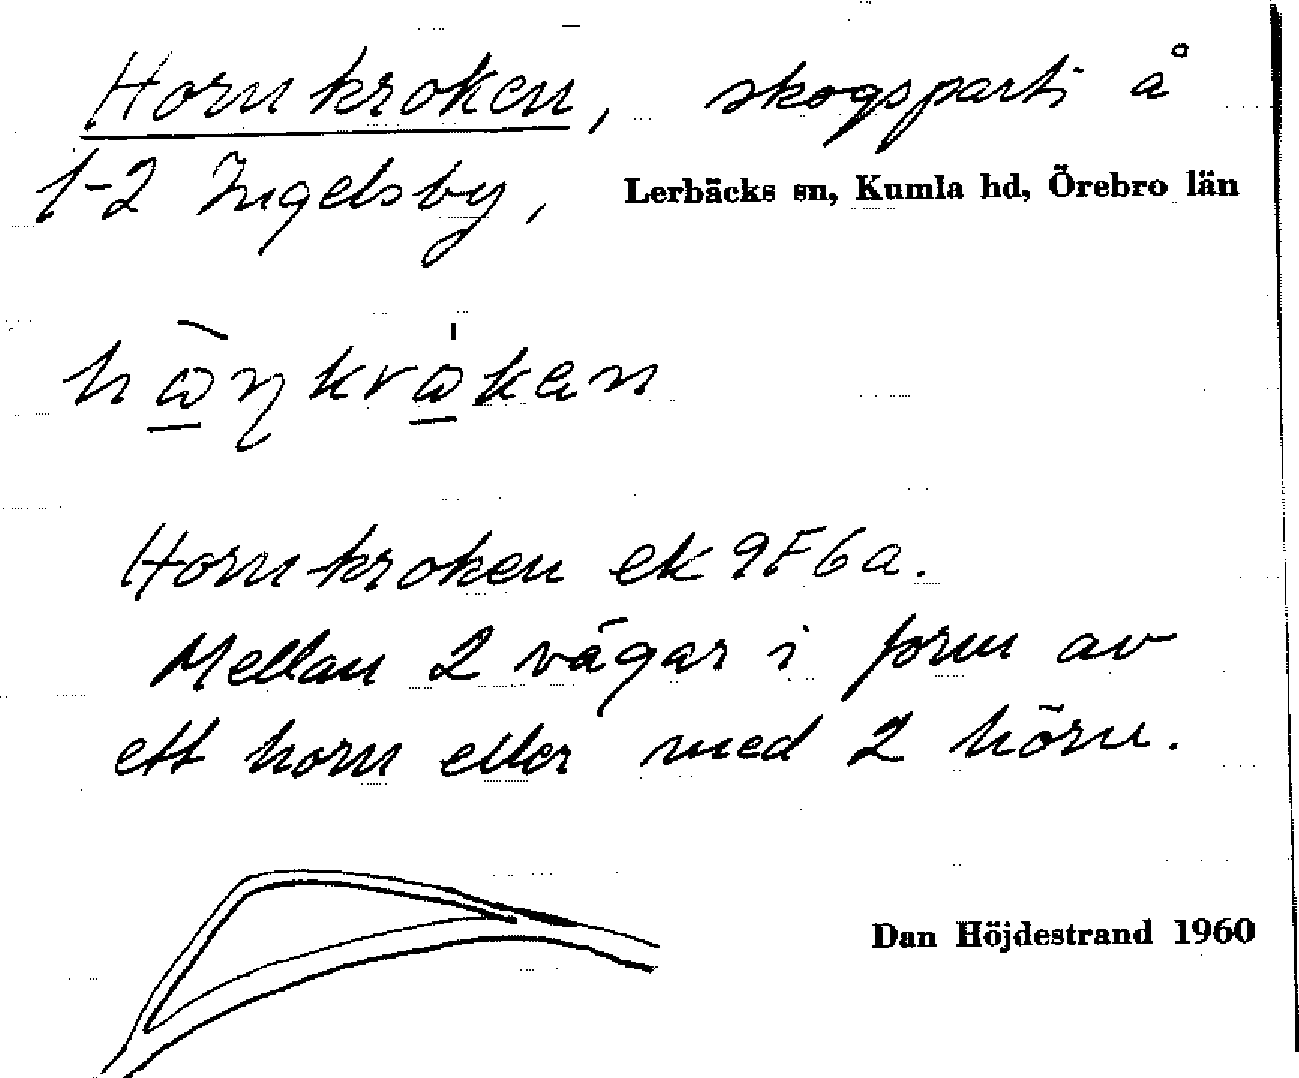 Hornkroken, skogsparti å
1-2 Ingelsby, Lerbäcks sn, Kumla hd, Örebro län
Hornkroken ek 9F6a.
Mellan 2 vägar i form av
ett horn eller med 2 hörn.
Dan Höjdestrand 1960